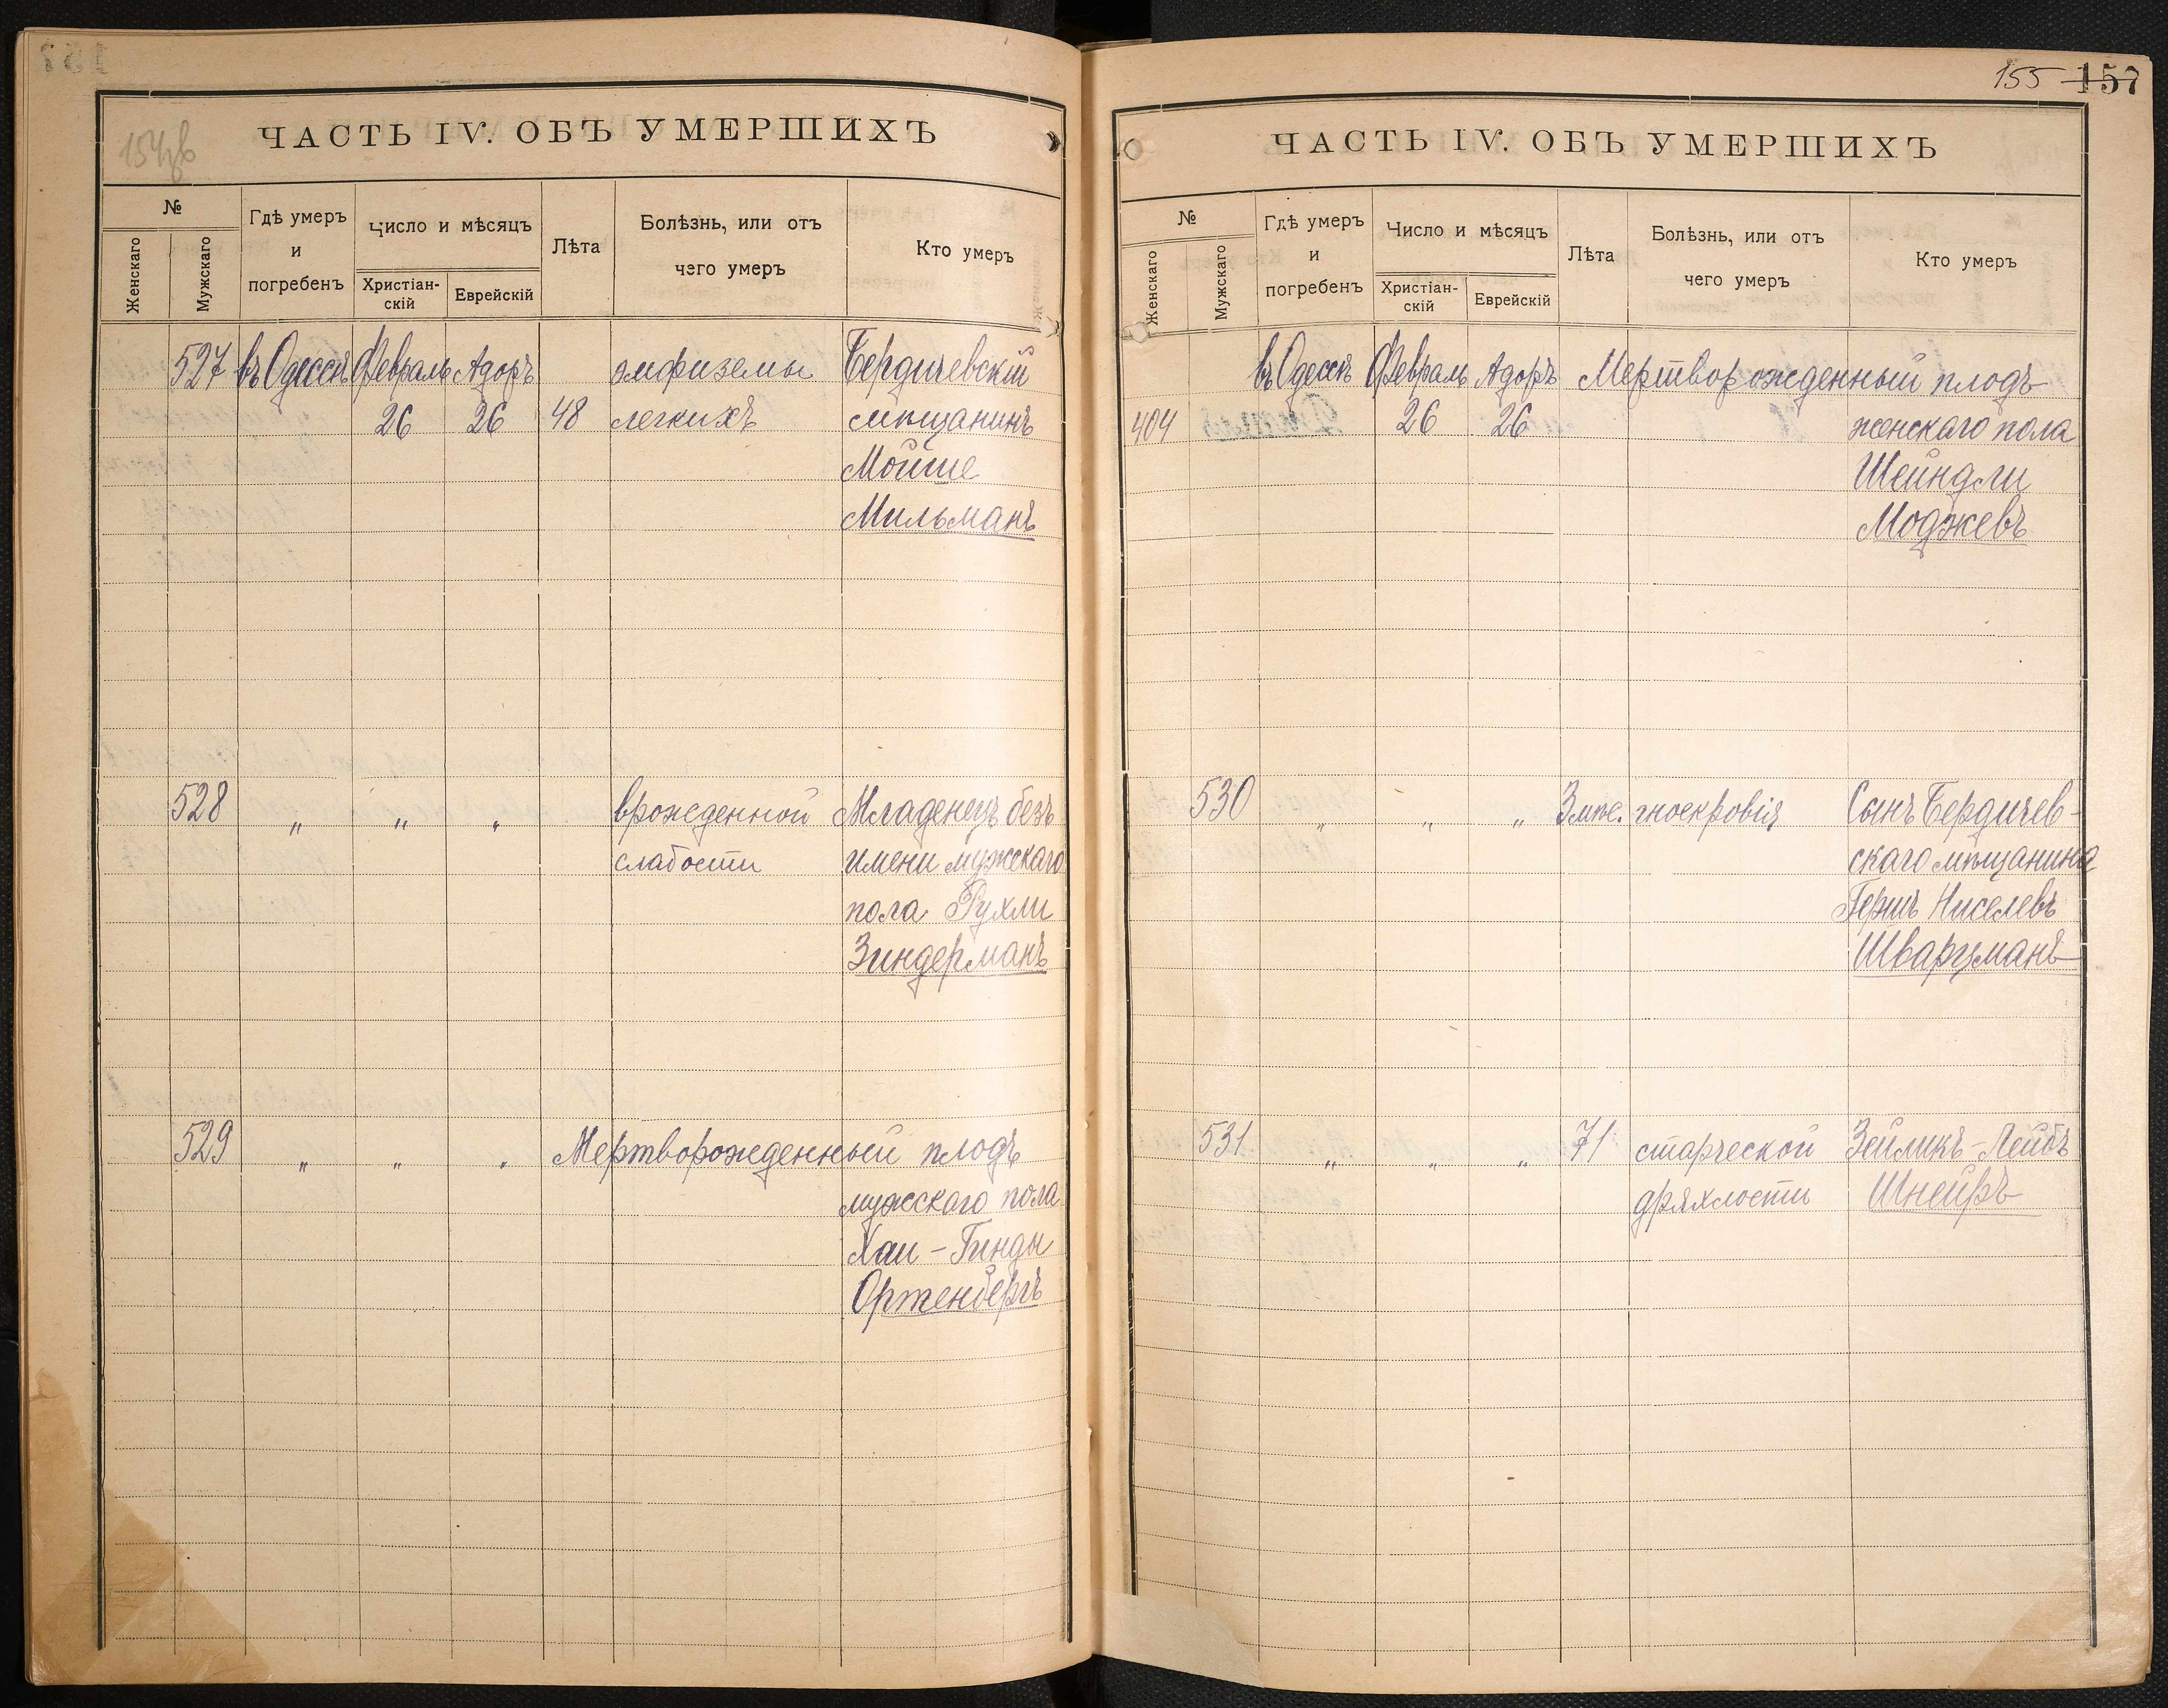 154об
ЧАСТЬ IV. ОБЪ УМЕРШИХЪ
№
Женскаго
Мужскаго
Гдѣ умеръ
и
погребенъ
Число и мѣсяцъ
Христіан-
скій
Еврейскій
Лѣта
Болѣзнь, или отъ
чего умеръ
Кто умеръ
527 въ Одессѣ Февраль Адоръ эмфиземы Бердичевскій
26 26 48 легкихъ мѣщанинъ
Мойше
Мильманъ
528 " " " врожденной Младенецъ безъ
слабости имени мужскаго
пола Рухли
Зиндерманъ
529 " " " Мертворожденный плодъ
мужского пола
Хаи-Гинды
Ортенбергъ
155 157
ЧАСТЬ IV. ОБЪ УМЕРШИХЪ
№
Женскаго
Мужскаго
Гдѣ умеръ
и
погребенъ
Число и мѣсяцъ
Христіан-
скій
Еврейскій
Лѣта
Болѣзнь, или отъ
чего умеръ
Кто умеръ
въ Одессѣ Февраль Адоръ Мертворожденный плодъ
404 26 26 женскаго пола
Шейндли
Моджевъ
530 " " " 3 мѣс. гноекровія Сынъ Бердичев-
скаго мѣщанина
Гершъ Ниселевъ
Шварцманъ
531 " " " 71 старческой Зейликъ-Лейбъ
дряхлости Шнейръ